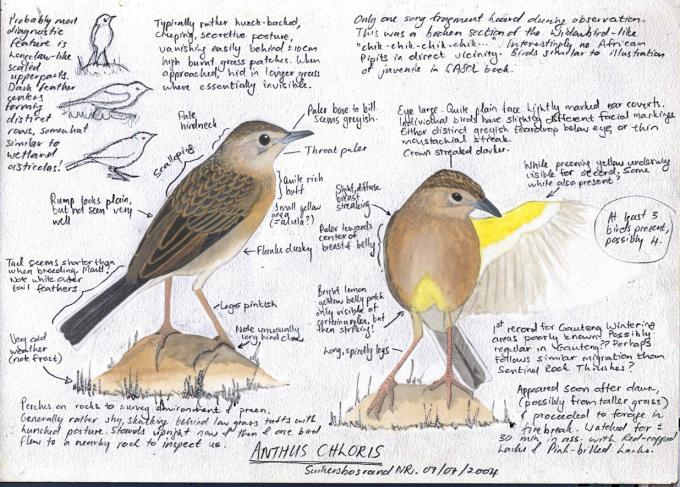 Probably most
diagnostic
feature is
longclaw-like
scaled
upperparts.
Dark feather
centers
forming
distinct
rows, somewhat
similar to
wetland
cisticolas!
Typically rather hunch-backed,
creeping, secretive posture,
vanishing easily behind ±10cm
high burnt grass patches. When
approached, hid in longer grass
where essentially invisible.
Only one song fragment heard during observation.
This was a broken section of the widowbird-like
"chik-chik-chik-chik...". Interestingly no African
Pipits in direct vicinity. Birds similar to illustration
of juvenile in SASOL book.
Pale
hindneck
Scalloping
Paler base to bill
seems greyish.
Throat paler
Quite rich
buff
Small yellow
area
(=alula?)
Rump looks plain,
but not seen very
well
Flanks dusky
Tail seems shorter than
when breeding. Moult?
Note white outer
tail feathers.
Legs pinkish
Very cold
weather
(not frost)
Note unusually
long hind claw
Eye large. Quite plain face. Lightly marked ear coverts.
Individual birds have slightly different facial markings
Either distinct greyish teardrop below eye, or thin
moustachial streak.
Crown streaked darker.
While preening yellow underwing
visible for second, some
white also present,
Slight, diffuse
breast
streaking
Paler towards
center of
breast & belly
At least 3
birds present,
possibly 4.
Bright lemon
yellow belly patch
only visible at
certain angles, but
then striking!
Long, spindly legs
1st record for Gauteng. Wintering
areas poorly known. Possibly
regular in Gauteng?? Perhaps
follows similar migration than
Sentinel Rock Thrushes?
Appeared soon after dawn,
(possibly from taller grass)
& proceeded to forage in
firebreak. Watched for ±
30 min, in ass. with Red-capped
Larks & Pink-billed Larks.
Perches on rocks to survey environment & preen.
Generally rather shy, skulking behind low grass tufts with
hunched posture. Stands upright now & then & one bird
flew to a nearby rock to inspect us.
ANTHUS CHLORIS
Suikerbosrand NR. 07/07/2004